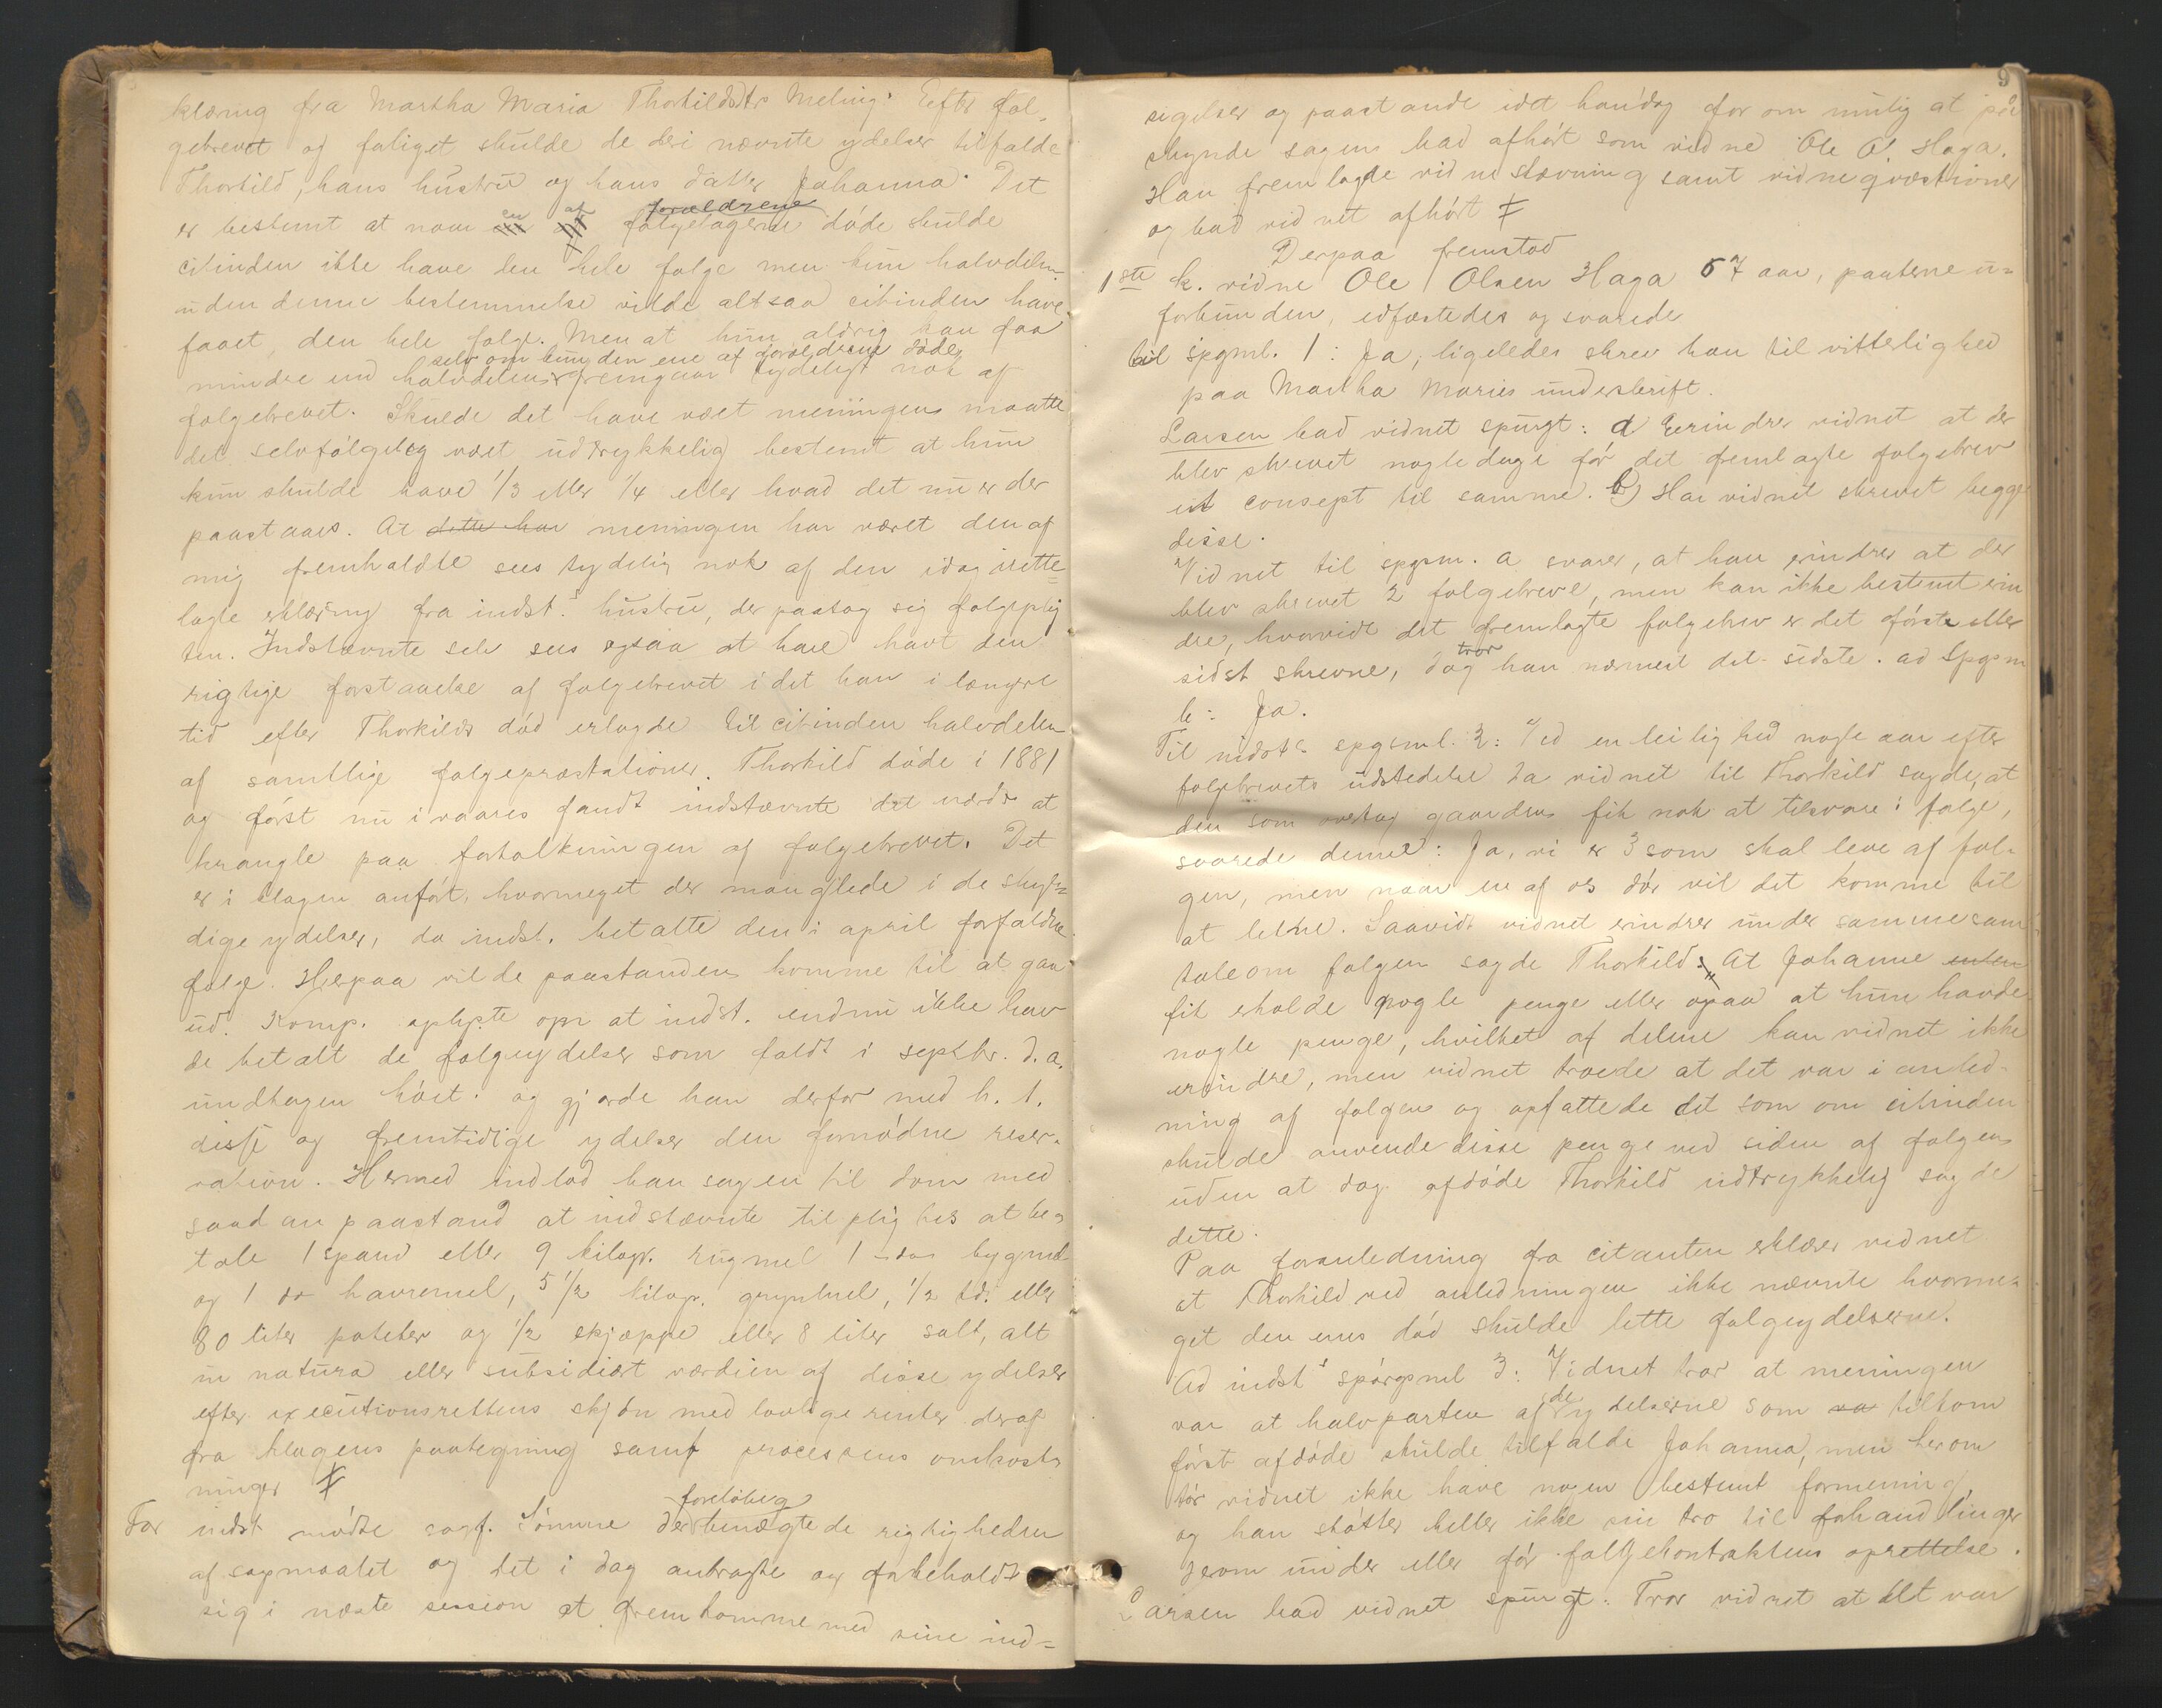 klæring fra Martha Maria Thorkildsdtr Meling. Efter fol-
gebrevet og følget skulde de deri nævnte ydelser tilfalde
Thorkild, hans hustru og hans datter Johanna. Det
er bestemt at naar en af forældrene døde skulde
citinden ikke have den hele folge men kun halvdelen
uden denne bestemmelse vilde altsaa citinden have
faaet den hele folge. Men at hun aldrig kan faa
mindre end halvdelen selv om kun den ene af forældrene døde, fremgaar tydeligt nok af
folgebrevet. Skulde det have vært meningen maatte
det selvfølgelig vært udtrykkelig bestemt at hun
kun skulde have 1/3 eller 1/4 eller hvad det nu er der
paastaaes. At dette har meningen har været den af
mig fremholdte sees tydelig nok af den idag irette-
lagte erklæring fra indst.s hustru, der paatog sig folgeplig
ten. Indstævnte selv sees ogsaa at have havt den
rigtige forstaaelse af folgebrevet idet han i længere
tid efter Thorkilds død erlagde til citinden halvdelen
af samtlige folgepræstationer. Thorkild døde i 1881
og først nu i vaares fandt indstævnte det værdt at
krangle paa fortolkningen af folgebrevet. Det
er i klagen anført, hvormeget der manglede i de skyl-
dige ydelser, da indst. betalte den i april forfaldne
folge. Herpaa vilde paastanden komme til at gaa
ud. Komp. oplyste om at indst. endnu ikke hav
de betalt de folgeydelser som faldt i septbr. d. a.
undtagen høiet. og gjorde han derfor med h. t.
disse og fremtidige ydelser den fornødne reser-
vation. Hermed indlod han sagen til dom med
saadan paastand at indstævnte tilpligtes at be-
tale 1 spand eller 9 kilogr. rugmel 1 do bygmel
og 1 do havremel, 5 1/2 kilogr. grynmel, 1/2 td. eller
80 liter poteter og 1/2 skjæppe eller 8 liter salt, alt
in natura eller subsidiært værdien af disse ydelser
efter executionsrettens skjøn med lovlige renter deraf
fra klagens paategning samt processens omkost-
ninger
For indst mødte sagf. Sømme der foreløbig benægtede rigtigheden
af sagmaalet og det i dag anbragte og forbeholdt
sig i næste session at fremkomme med sine ind-
9
sigelser og paastande idet han dog for om mulig at på
skynde sagen bad afhørt som vidne Ole O. Haga.
Han fremlagde vidnestævning samt vidneqvæstioner
og bad vidnet afhørt
Derpaa fremstod
1ste k. vidne Ole Olsen Haga 57 aar, parterne u-
forbunden, edfæstedes og svarede
til spgml. 1: Ja, ligeledes skrev han til vitterlighed
paa Martha Maries underskrift.
Larsen bad vidnet spurgt: a Erindrer vidnet at der
blev skrevet nogle dage før det fremlagte folgebrev
et consept til samme. b) Har vidnet skrevet begge
disse.
Vidnet til spgsm. a svarer, at han erindrer at der
blev skrevet 2 folgebreve, men kan ikke bestemt erin
dre, hvorvidt det fremlagte folgebrev er det første eller
sidst skrevne, dog tror han nærmest det sidste. ad Spgsm
b: Ja.
Til indsts spgsml. 2: Ved en leilighed nogle aar efter
folgebrevets udstedelse da vidnet til Thorkild sagde, at
den som overtog gaarden fik nok at tilsvare i folge,
svarede denne: Ja, vi er 3 som skal leve af fol-
gen, men naar en af os dør vil det komme til
at letne. Saavidt vidnet erindrer under samme sam-
tale om folgen sagde Thorkild: „At Johanne enten
fik eholde nogle penge eller ogsaa at hun havde
nogle penge, hvilket af delene kan vidnet ikke
erindre, men vidnet troede at det var i anled-
ning af folgen og opfattede det som om citinden
skulde anvende disse penge ved siden af folgen
uden at dog afdøde Thorkild udtrykkelig sagde
dette.
Paa foranledning fra citanten erklærer vidnet
at Thorkild ved anledningen ikke nævnte hvorme-
get den enes død skulde lette folgeydelserne.
Ad indsts spørgsml 3: Vidnet tror at meningen
var at halvparten af de ydelserne som va tilkom
først afdøde skulde tilfalde Johanna, men herom
tør vidnet ikke have nogen bestemt formening,
og han støtter heller ikke sin tro til forhandlinger
herom under eller før folgekontraktens oprettelse.
Larsen bad vidnet spurgt: Tror vidnet at det var